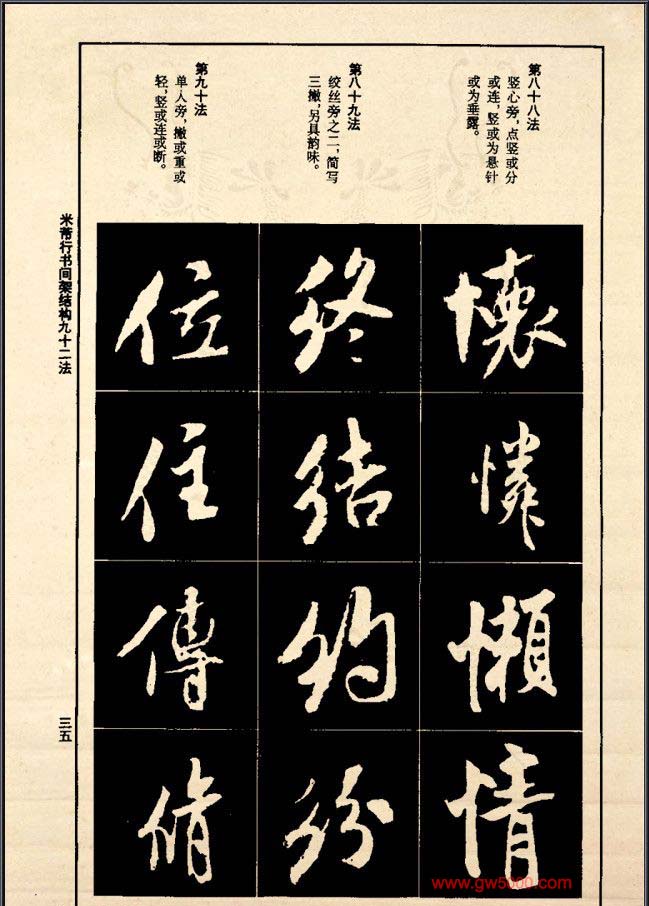 第八十八法
竖心旁，点竖或分
或连，竖或为悬针
或为垂露。
第八十九法
绞丝旁之二，简写
三撇，另具韵味。
第九十法
单人旁，撇或重或
轻，竖或连或断。
懷
憐
懶
情
终
结
約
纷
位
住
傳
脩
米芾行书间架结构九十二法
三五
www.gw5000.com